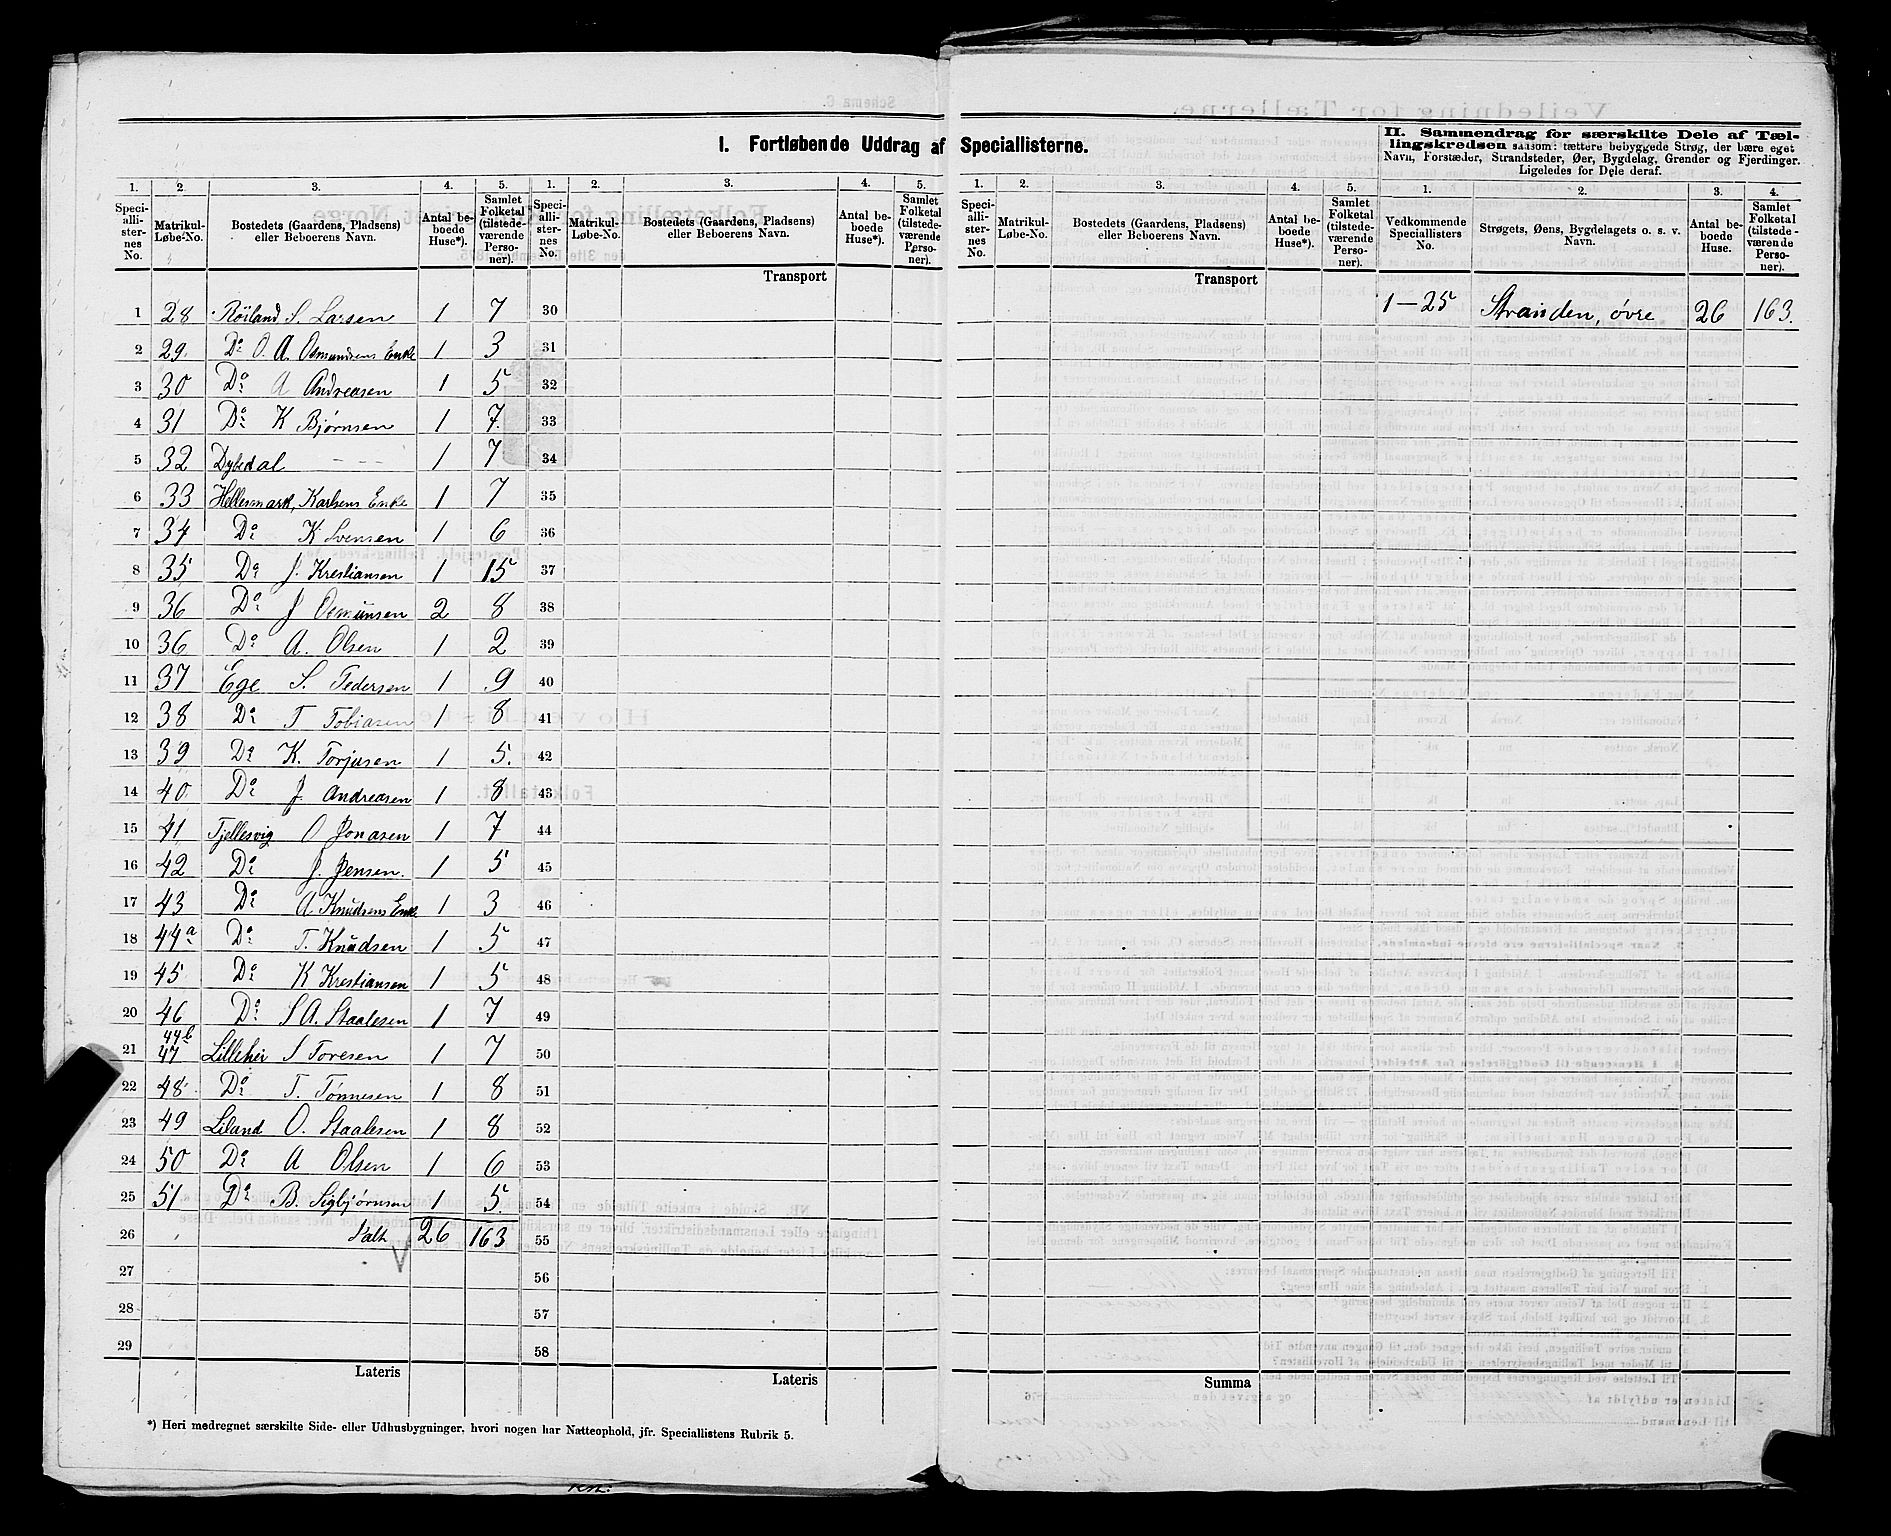 I. Fortløbende Uddrag af Speciallisterne.
II. Sammendrag for særskilte Dele af Tæl-
lingskredsen saasom: tættere bebyggede Strøg, der bære eget
Navn, Forstæder, Strandsteder, Øer, Bygdelag, Grender og Fjerdinger.
Ligeledes for Dele deraf.
1. 2. 3. 4. 5. 1. 2. 3. 4. 5. 1. 2. 3. 4. 5. 1. 2. 3. 4.
Speci-alli-ster-nes No. Matrikul-Løbe-No. Bostedets (Gaardens, Pladsens) eller Beboerens Navn. Antal be-boede Huse*). Samlet Folketal (tilstede-værende Perso-ner).
Speci-alli-ster-nes No. Matrikul-Løbe-No. Bostedets (Gaardens, Pladsens) eller Beboerens Navn. Antal be-boede Huse*). Samlet Folketal (tilstede-værende Perso-ner).
Speci-alli-ster-nes No. Matrikul-Løbe-No. Bostedets (Gaardens, Pladsens) eller Beboerens Navn. Antal be-boede Huse*). Samlet Folketal (tilstede-værende Perso-ner).
Vedkommende Speciallisters No. Strøgets, Øens, Bygdelagets o. s. v. Navn. Antal be-boede Huse. Samlet Folketal (tilstede-værende Perso-ner).
Transport Transport
1 28 Røiland S. Larsen 1 7 30 1—25 Stranden, øvre 26 163.
2 29 Do O. A. Osmundsens Enke 1 3 31
3 30 Do A Andreasen 1 5 32
4 31 Do K Bjørnsen 1 7 33
5 32 Dybedal - - - 1 7 34
6 33 Hellesmark, Karlsens Enke 1 7 35
7 34 Do K Svensen 1 6 36
8 35 Do J. Krestiansen 1 15 37
9 36 Do J Osmunsen 2 8 38
10 36 Do A. Olsen 1 2 39
11 37 Ege S. Pedersen 1 9 40
12 38 Do T Tobiasen 1 8 41
13 39 Do K. Torjusen 1 5. 42
14 40 Do J. Andreasen 1 8 43
15 41 Tjellesvig O Jonasen 1 7 44
16 42 Do J. Jensen. 1 5 45
17 43 Do A Knudsens Enke 1 3 46
18 44a Do T. Knudsen 1 5 47
19 45 Do K Krestiansen 1 5 48
20 46 Do S A. Staalesen 1 7 49
44b
21 47 Lillehei S Toresen 1 7 50
22 48 Do T. Tønnesen 1 8 51
23 49 Liland O. Staalesen 1 8 52
24 50 Do A Olsen 1 6 53
25 51 Do B. Sigbjørnsen 1 5. 54
26 Talt 26 163 55
27 56
28 57
29 58
Lateris Lateris Summa
*) Heri medregnet særskilte Side- eller Udhusbygninger, hvori nogen har Natteophold, jfr. Speciallistens Rubrik 5.